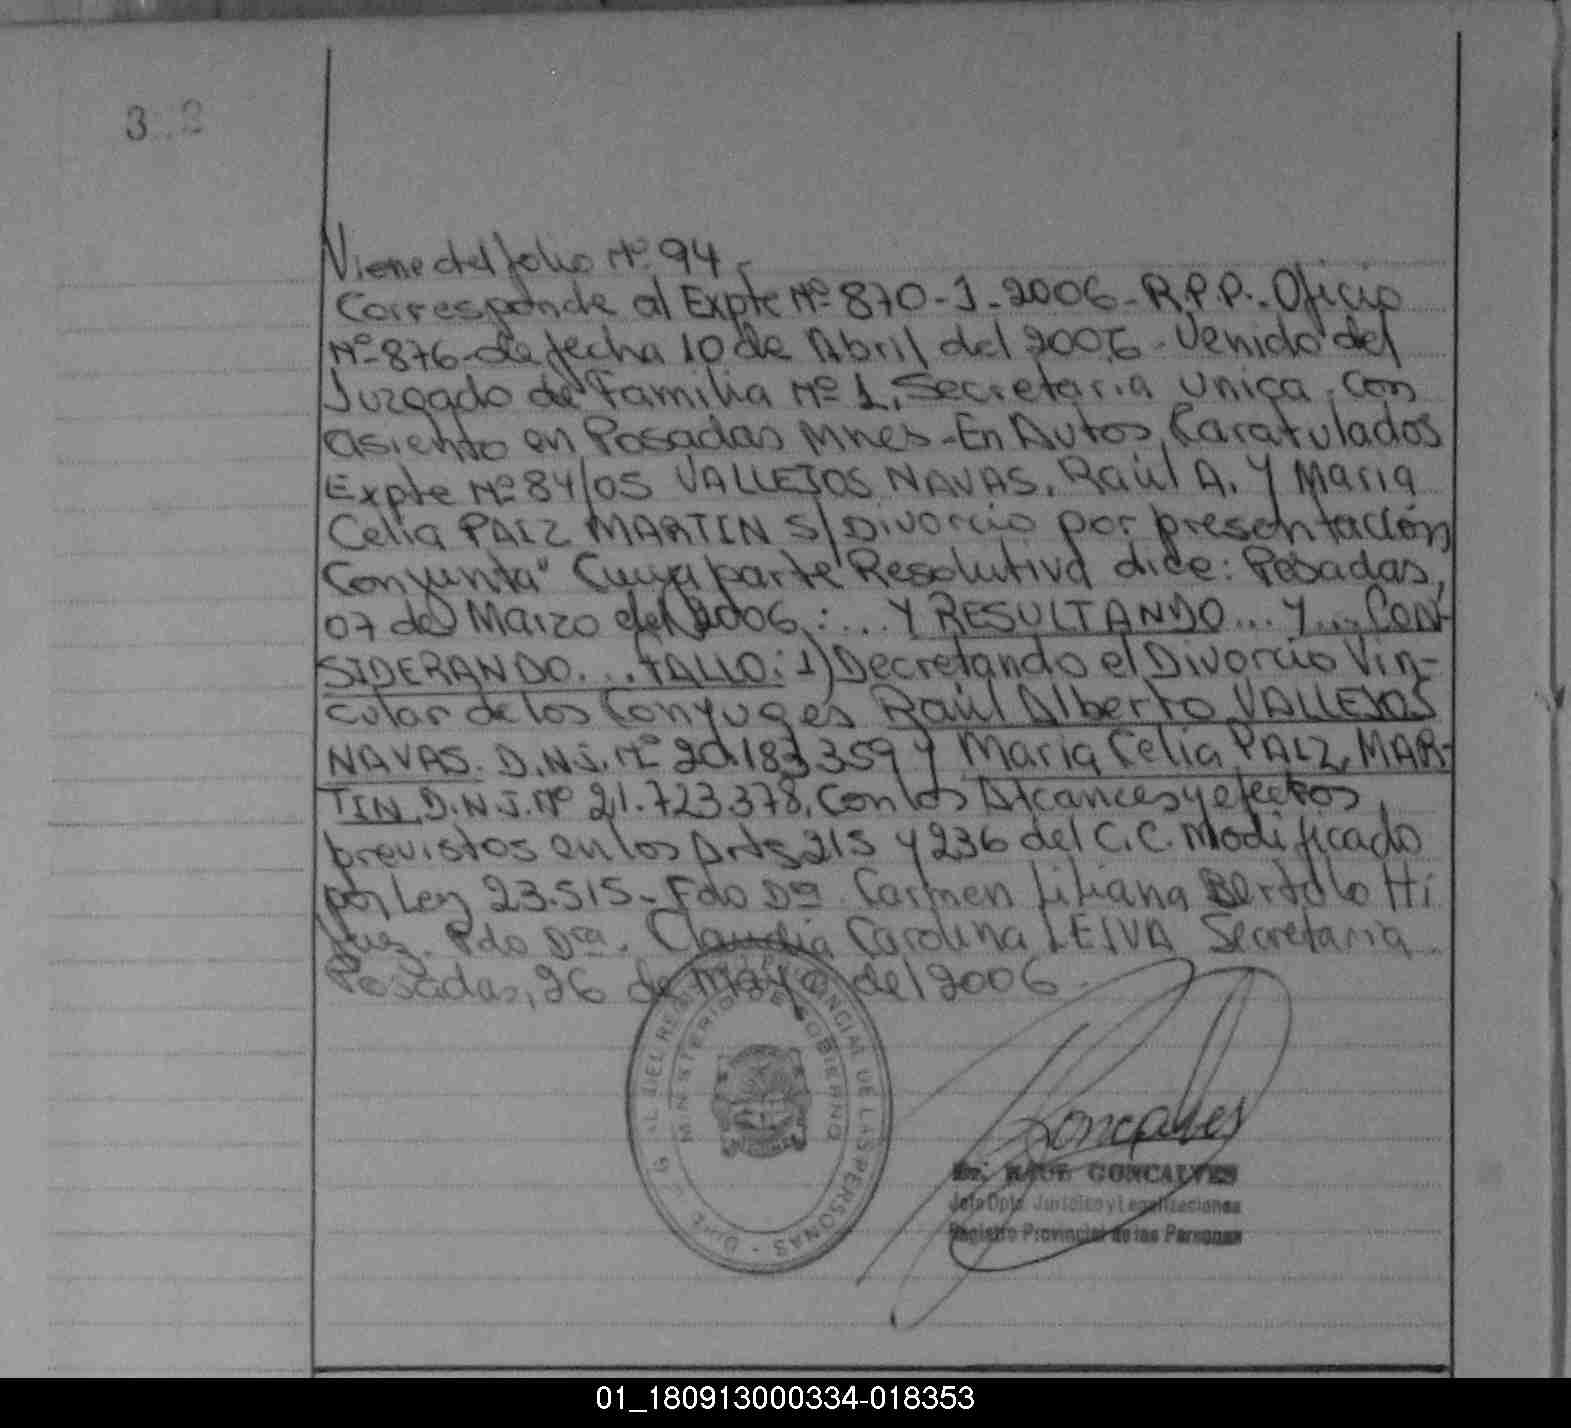 Viene del folio Nº 94
Corresponde al Expte Nº 870-J-2006-R.P.P.- Oficio
Nº-876-de fecha 10 de Abril del 2006-Venido del
Juzgado de Familia Nº 1, Secretaria unica, con
asiento en Posadas Mnes-En Autos, Caratulados
Expte Nº 84/05 VALLEJOS NAVAS, Raúl A. Y Maria
Celia PALZ MARTIN S/Divorcio por presentación
Conjunta" Cuya parte Resolutiva dice: Posadas,
07 de Marzo del 2006: ... Y RESULTANDO... Y... CON-
SIDERANDO... FALLO: 1) Decretando el Divorcio Vin-
cular de los Conyuges Raúl Alberto VALLEJOS
NAVAS. D.N.I. Nº 20.183.359 y Maria Celia PALZ, MAR-
TIN, D.N.I. Nº 21.723.378, con los Alcances y efectos
previstos en los Arts 215 y 236 del C.C. Modificado
por Ley 23.515- Fdo Dra. Carmen Liliana
Juez. Fdo Dra. Claudia Carolina LEIVA Secretaria
Posadas, 26 de Mayo del 2006.
PROVINCIAL DE LAS PERSONAS
MINISTERIO DE GOBIERNO
Goncalves
Dr. RAUL GONCALVES
Jefe Dpto. Jurídico y Legalizaciones
Registro Provincial de las Personas
01_180913000334-018353